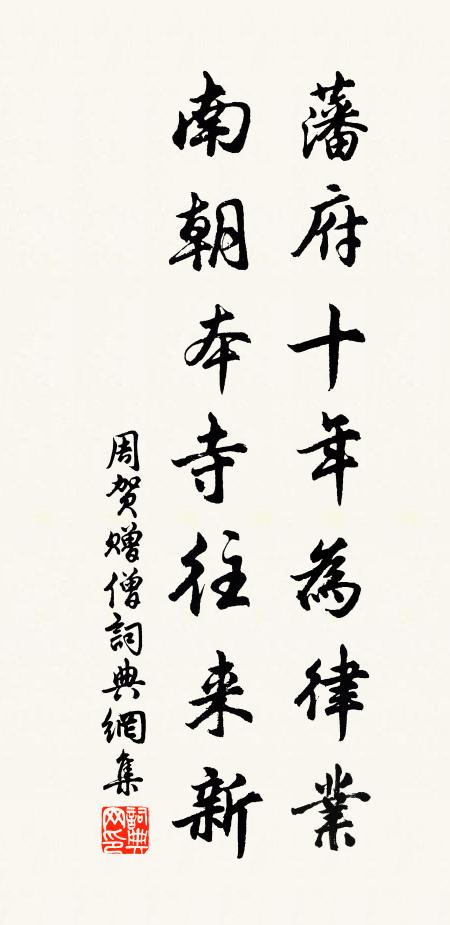 藩府十年為律業
南朝本寺往来新
周贺赠僧詞典網集
詞典網印